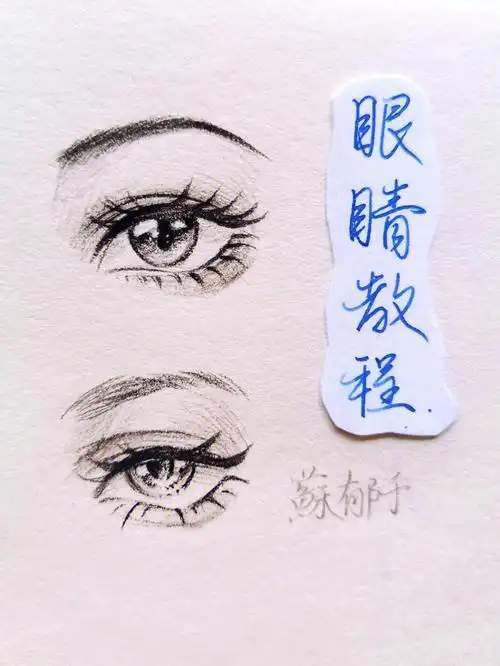 眼睛教程.
蘇郁予